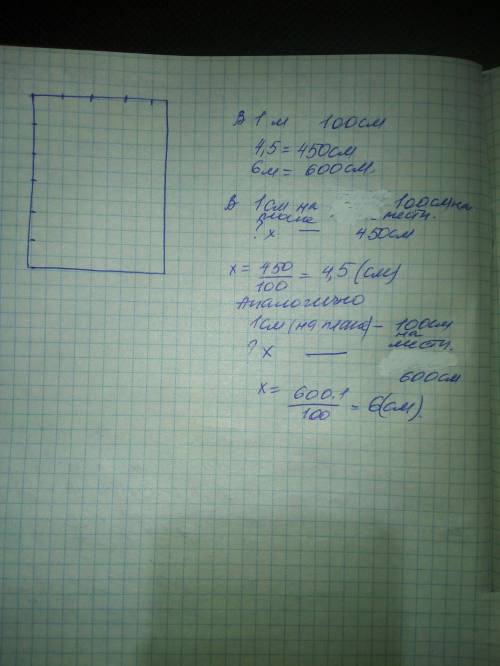 В 1 м 100см
4,5 = 450см
6м = 600см.
В 1см на 100см на
плане мести.
? х — 450см
х = 450/100 = 4,5 (см)
Аналогично
1см (на плане) – 100см
на
? х — мести.
600см
х = 600·1/100 = 6(см).